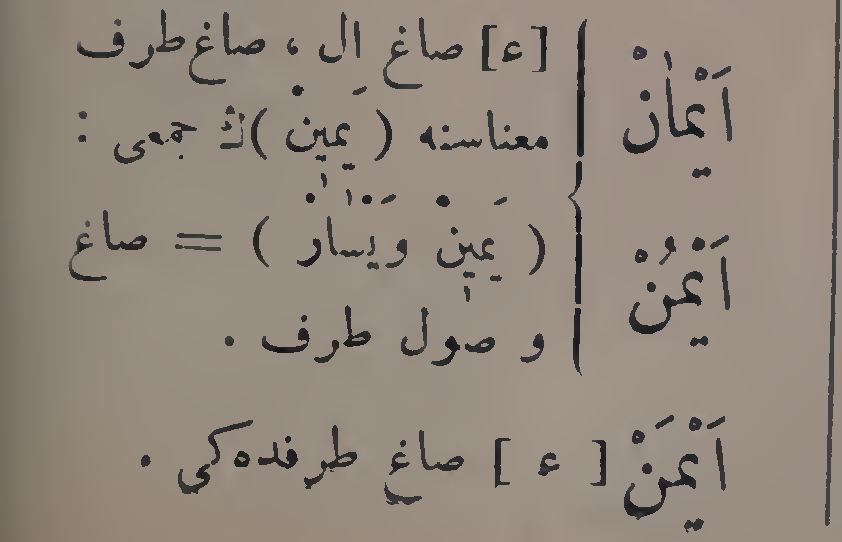 اَيْمٰانْ [ء] صاغ ال ، صاغ طرف
معناسنه ( يَمينْ )ڭ جمعى :
اَيْمُنْ ( يَمينْ وَيَسٰارْ ) = صاغ
و صول طرف .
اَيْمَنْ [ ء ] صاغ طرفده كى .